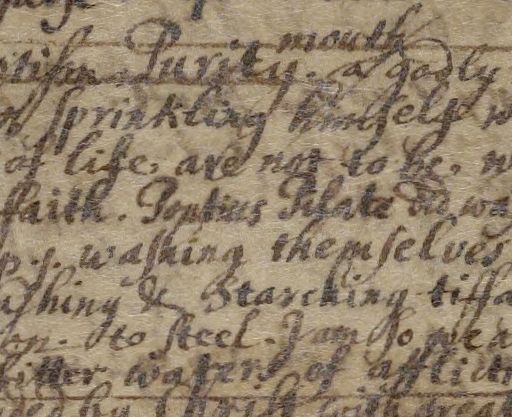 mouth
Purity. a godly
sprinkling himself w
of life. are not to be. w
faith. Pontius Pilate did wa
p. s. washing themselves
ashing & Starching tiffa
on. to steel. I am so wea
bitter waters of afflicti
by Christ